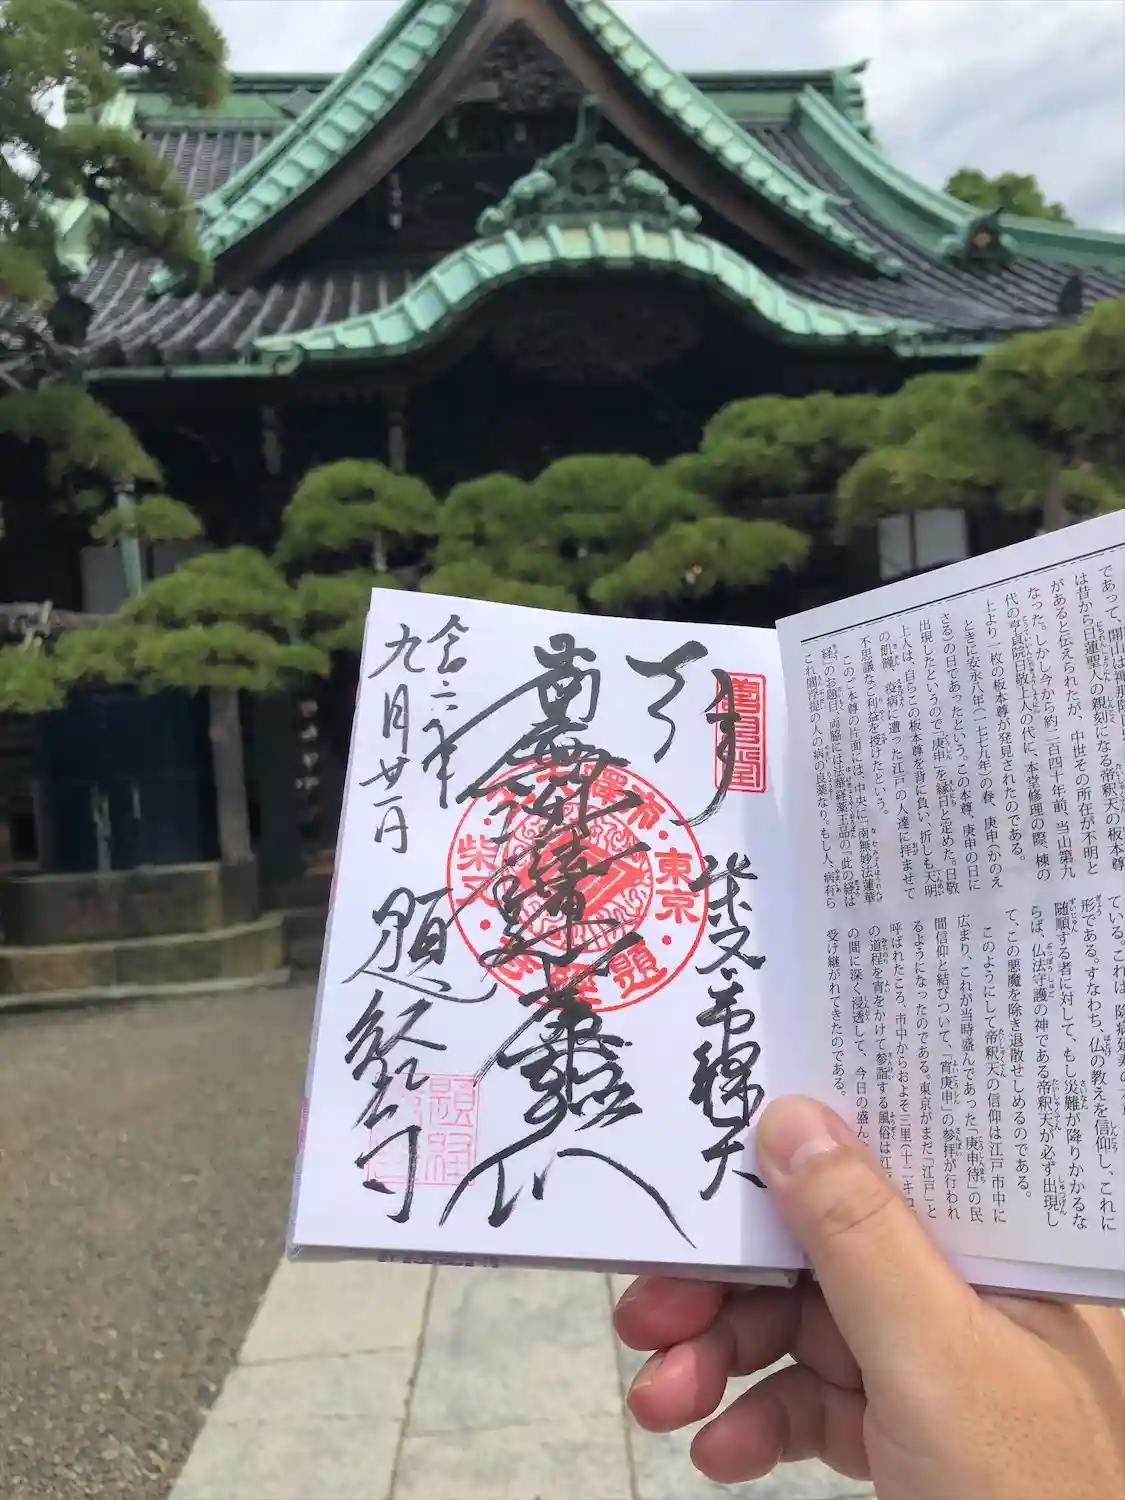 であって、開山は禅那院日
は昔から日蓮聖人の親刻になる帝釈天の板本尊
があると伝えられたが、中世その所在が不明と
なった。しかし今から約二百四十年前、当山第九
代の亨貞院日敬上人の代に、本堂修理の際、棟の
上より一枚の板本尊が発見されたのである。
ときに安永八年(一七七九年)の春、庚申(かのえ
さる)の日であったという。この本尊、庚申の日に
出現したというので「庚申」を縁日と定めた。日敬
上人は、自らこの板本尊を背に負い、折しも天明
の飢饉、疫病に遭った江戸の人達に拝ませて
不思議なご利益を授けたという。
このご本尊の片面には、中央に「南無妙法蓮華
経」のお題目、両脇には法華経薬王品の「此の経は
これ閻浮提の人の病の良薬なり。もし人、病有ら
ている。これは、除病延寿の
形である。すなわち、仏の教えを信仰し、これに
随順する者に対して、もし災難が降りかかるな
らば、仏法守護の神である帝釈天が必ず出現し
て、この悪魔を除き退散せしめるのである。
このようにして帝釈天の信仰は江戸市中に
広まり、これが当時盛んであった「庚申待」の民
間信仰と結びついて、「宵庚申」の参拝が行われ
るようになったのである。東京がまだ「江戸」と
呼ばれたころ、市中からおよそ三里(十二キロ
の道程を宵をかけて参詣する風俗は江
の間に深く浸透して、今日の盛ん
受け継がれてきたのである。
柴又帝釈天
南無妙法蓮華経
令二年
九月廿一日
題経寺
東京
柴又
題経